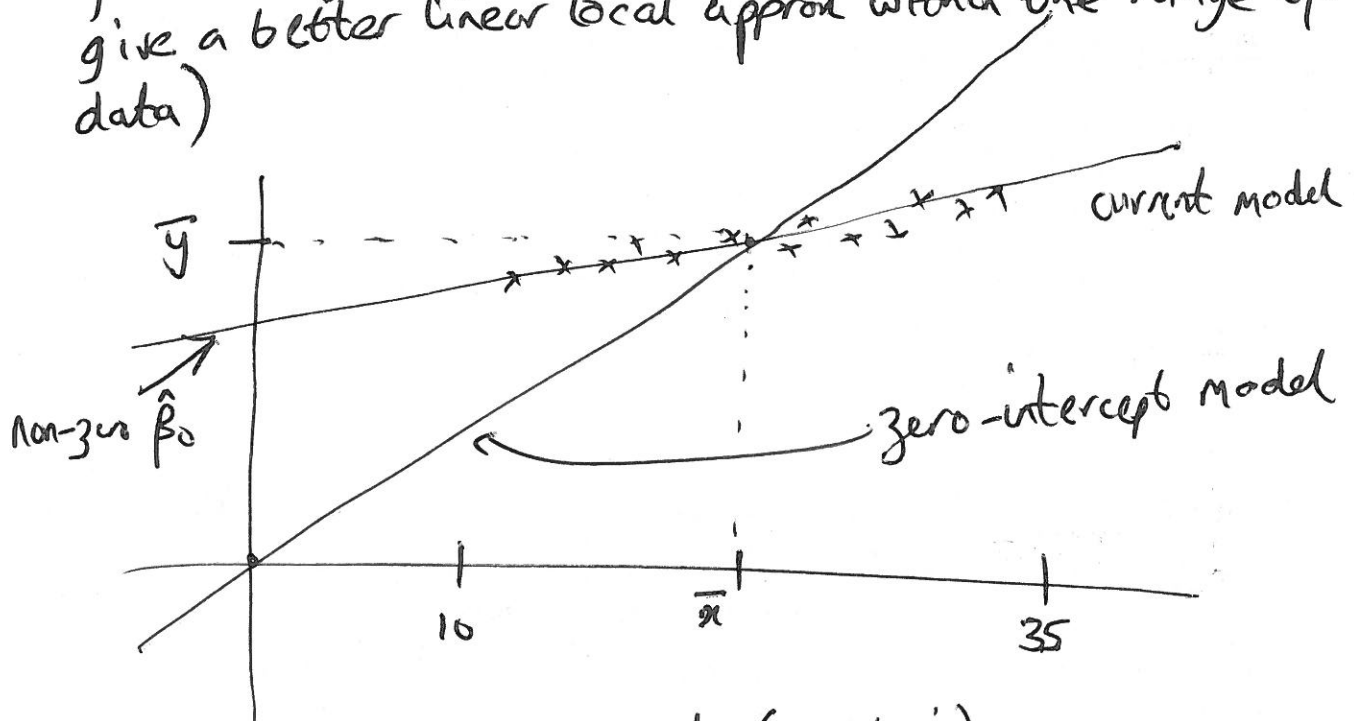 give a better linear local approx within the range of
data)
y̅
current model
non-zero β̂₀
zero-intercept model
10
x̅
35